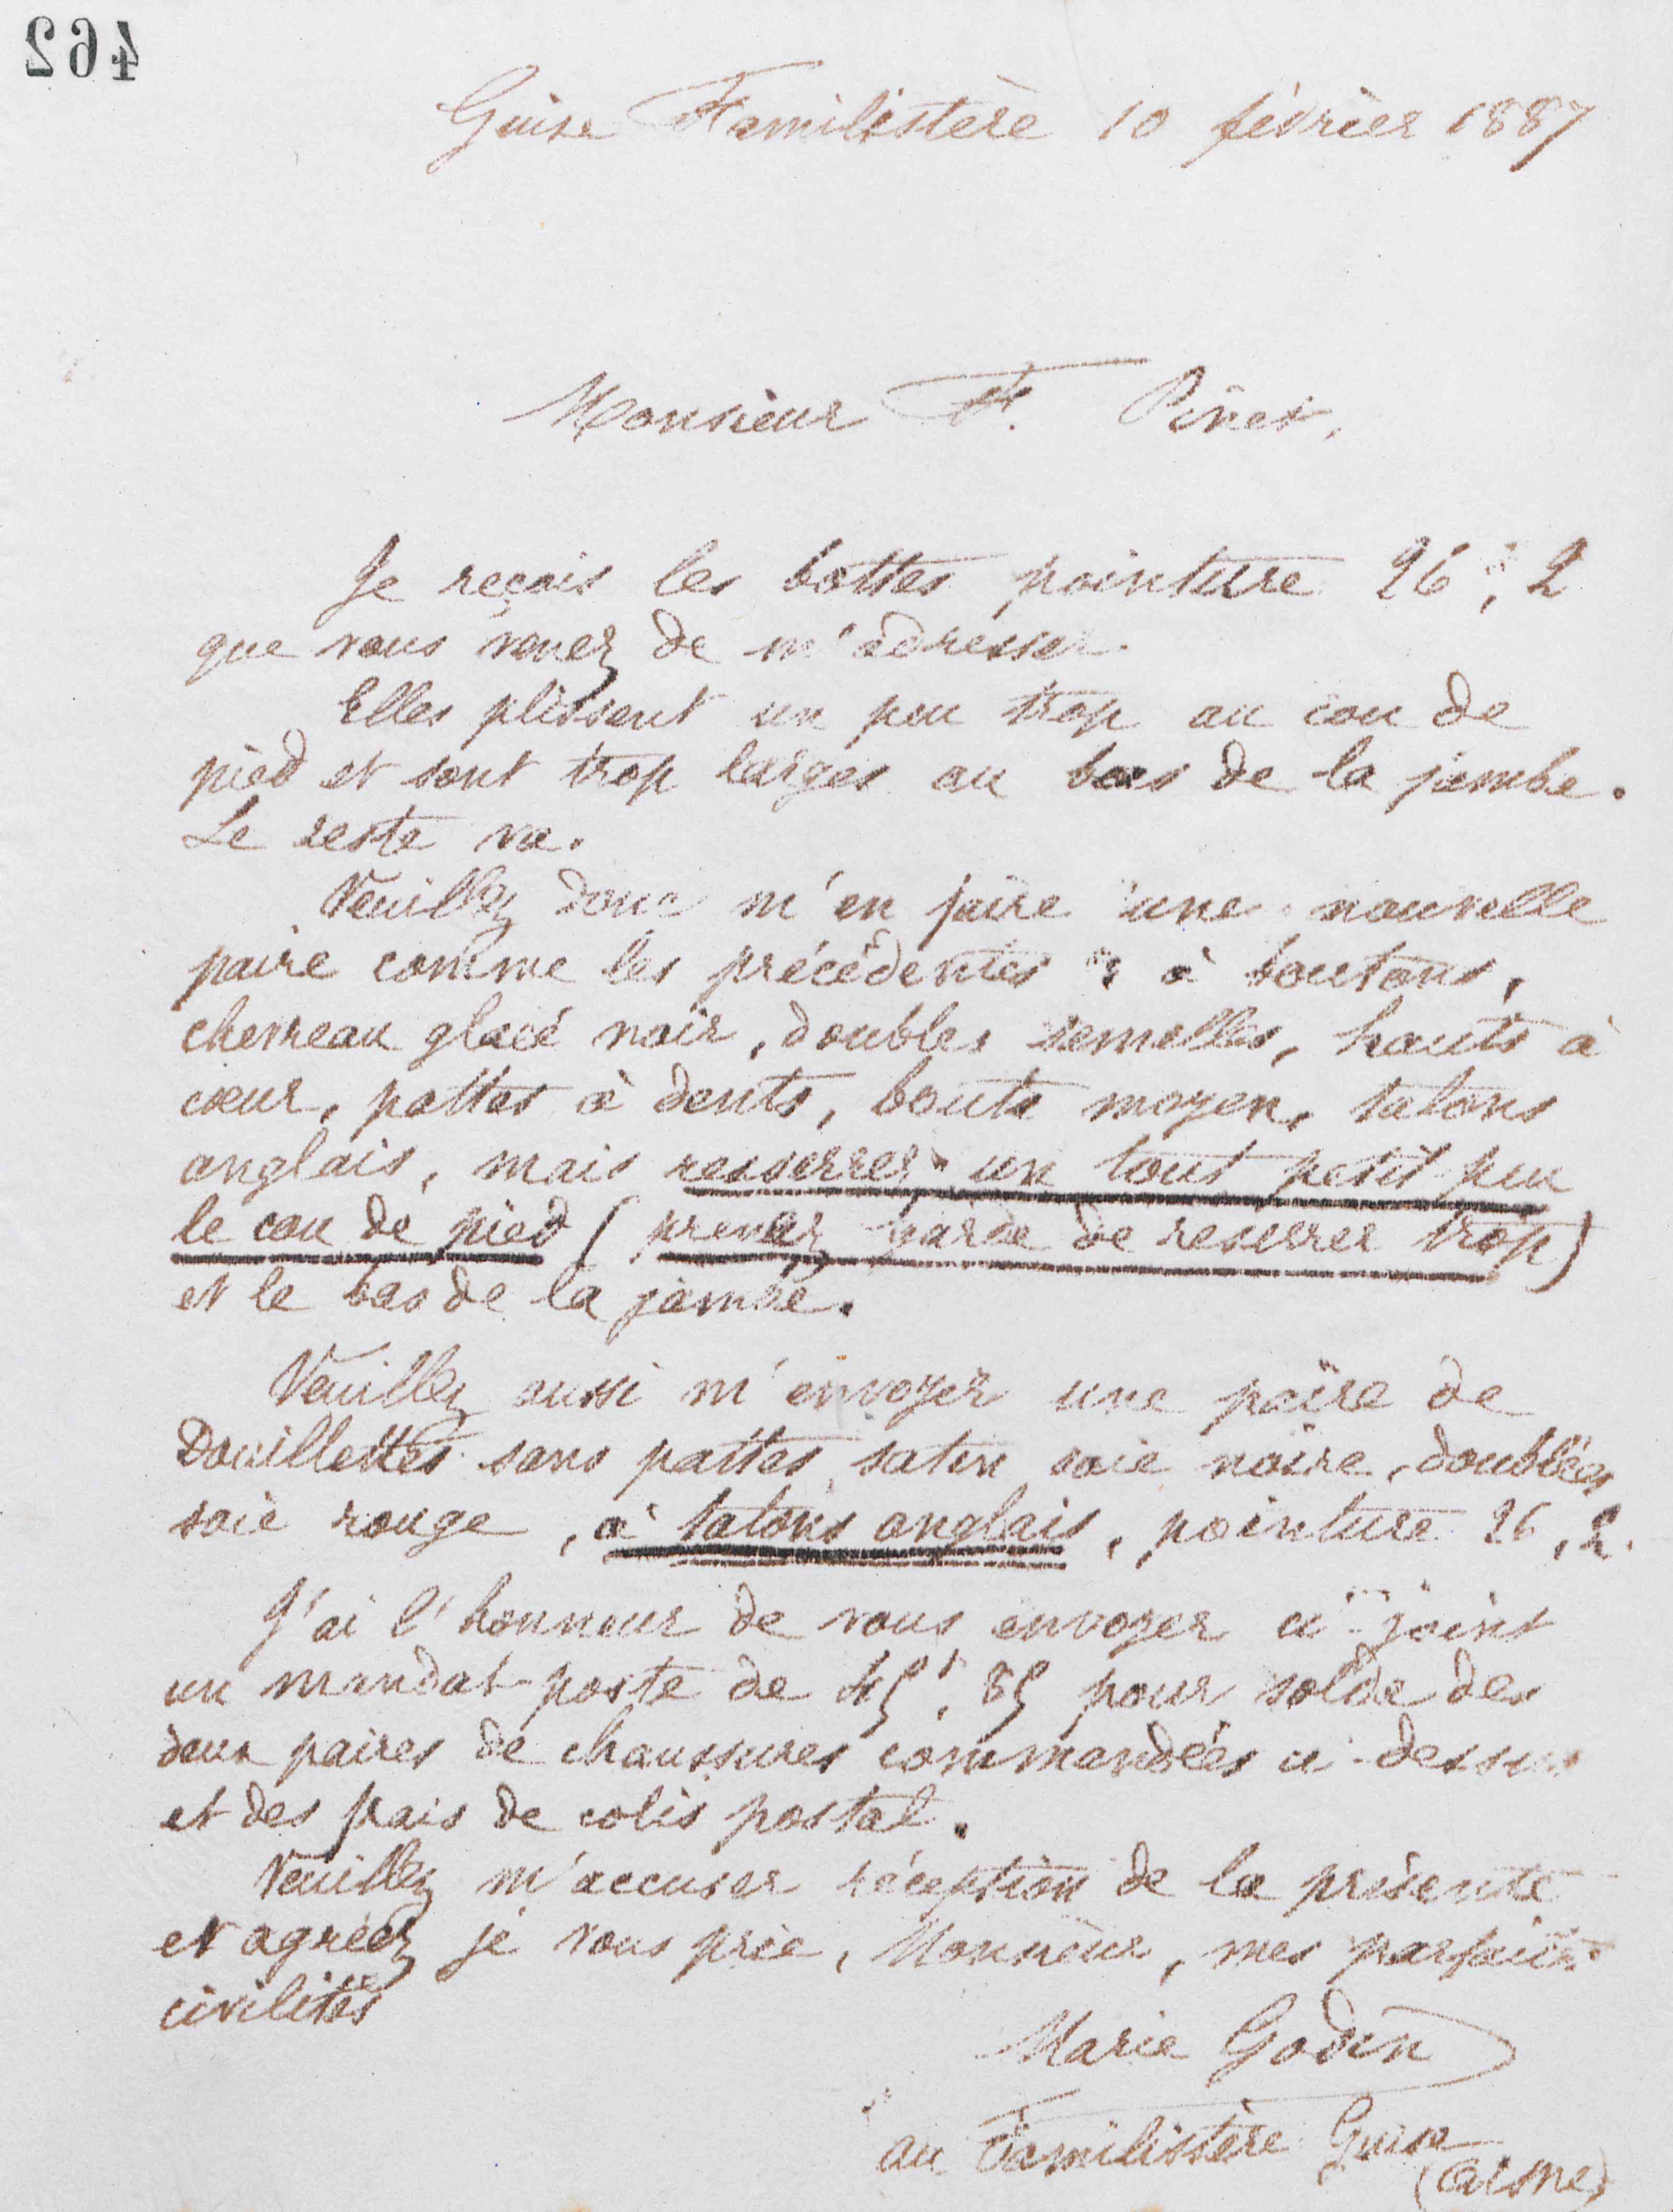 462
Guise Familistère 10 février 1887
Monsieur F. Pinet,
Je reçois les bottes pointure 26, 2
que vous venez de m'adresser.
Elles plissent un peu trop au cou de
pied et sont trop larges au bas de la jambe.
Le reste va.
Veuillez donc m'en faire une nouvelle
paire comme les précédentes : à boutons,
chevreau glacé noir, doubles semelles, hauts à
cœur, pattes à dents, bouts moyen, talons
anglais, mais resserrez un tout petit peu
le cou de pied (prenez garde de resserrer trop)
et le bas de la jambe.
Veuillez aussi m'envoyer une paire de
Douillettes sans pattes, satin soie noire, doublées
soie rouge, à talons anglais, pointure 26, 2.
J'ai l'honneur de vous envoyer ci-joint
un mandat-poste de 45f, 85 pour solde des
deux paires de chaussures commandées ci-dessus
et des frais de colis postal.
Veuillez m'accuser réception de la présente
et agréez je vous prie, Monsieur, mes parfaites
civilités
Marie Godin
au Familistère Guise
(Aisne)